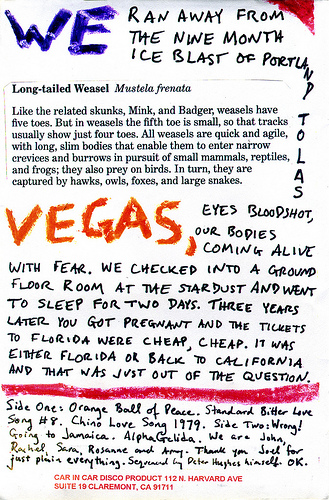 WE RAN AWAY FROM
THE NINE MONTH
ICE BLAST OF PORTLAND TO LAS
Long-tailed Weasel Mustela frenata
Like the related skunks, Mink, and Badger, weasels have
five toes. But in weasels the fifth toe is small, so that tracks
usually show just four toes. All weasels are quick and agile,
with long, slim bodies that enable them to enter narrow
crevices and burrows in pursuit of small mammals, reptiles,
and frogs; they also prey on birds. In turn, they are
captured by hawks, owls, foxes, and large snakes.
VEGAS, EYES BLOODSHOT,
OUR BODIES
COMING ALIVE
WITH FEAR. WE CHECKED INTO A GROUND
FLOOR ROOM AT THE STARDUST AND WENT
TO SLEEP FOR TWO DAYS. THREE YEARS
LATER YOU GOT PREGNANT AND THE TICKETS
TO FLORIDA WERE CHEAP, CHEAP. IT WAS
EITHER FLORIDA OR BACK TO CALIFORNIA
AND THAT WAS JUST OUT OF THE QUESTION.
Side One: Orange Ball of Peace. Standard Bitter Love
Song #8. Chino Love Song 1979. Side Two: Wrong!
Going to Jamaica. Alpha Gelida. We are John,
Rachel, Sara, Rosanne and Amy. Thank you Joel for
just plain everything. Sequenced by Peter Hughes himself. OK.
CAR IN CAR DISCO PRODUCT 112 N. HARVARD AVE
SUITE 19 CLAREMONT, CA 91711